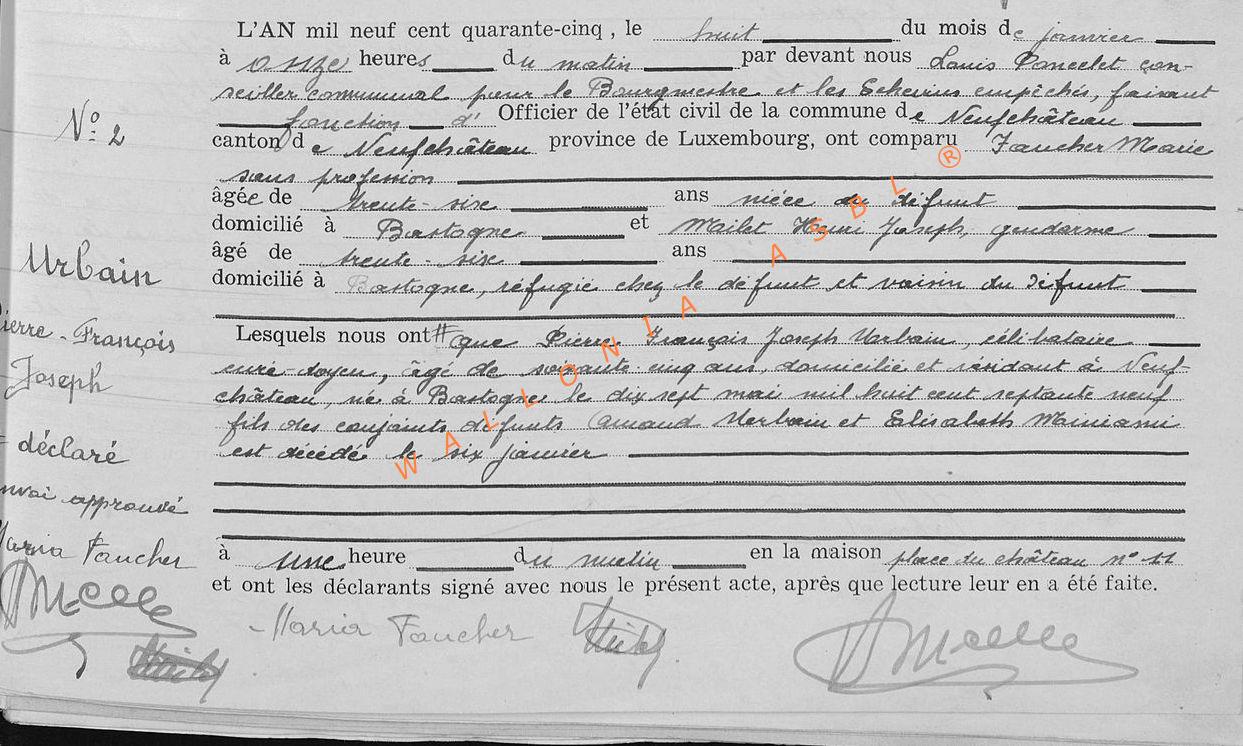 L'AN mil neuf cent quarante-cinq, le huit du mois de janvier
à onze heures du matin par devant nous Louis Poncelet con-
seiller communal pour le Bourgmestre et les Echevins empêchés, faisant
fonction d' Officier de l'état civil de la commune de Neufchâteau
N° 2
canton de Neufchâteau province de Luxembourg, ont comparu Faucher Marie
sans profession
âgée de trente-six ans nièce du défunt
domicilié à Bastogne et Mailet Henri Joseph, gendarme
âgé de trente-six ans
domicilié à Bastogne, réfugié chez le défunt et voisin du défunt
Urbain
Pierre-François
Joseph
Lesquels nous ont # que Pierre François Joseph Urbain, célibataire
curé-doyen, âgé de soixante-cinq ans, domicilié et résidant à Neuf-
château, né à Bastogne le dix sept mai mil huit cent septante neuf
fils des conjoints défunts Urbain et Elisabeth
est décédé le six janvier
# déclaré
renvoi approuvé
Maria Faucher
à une heure du matin en la maison place du château n° 11
et ont les déclarants signé avec nous le présent acte, après que lecture leur en a été faite.
Maria Faucher
WALLONIA ASBL ®